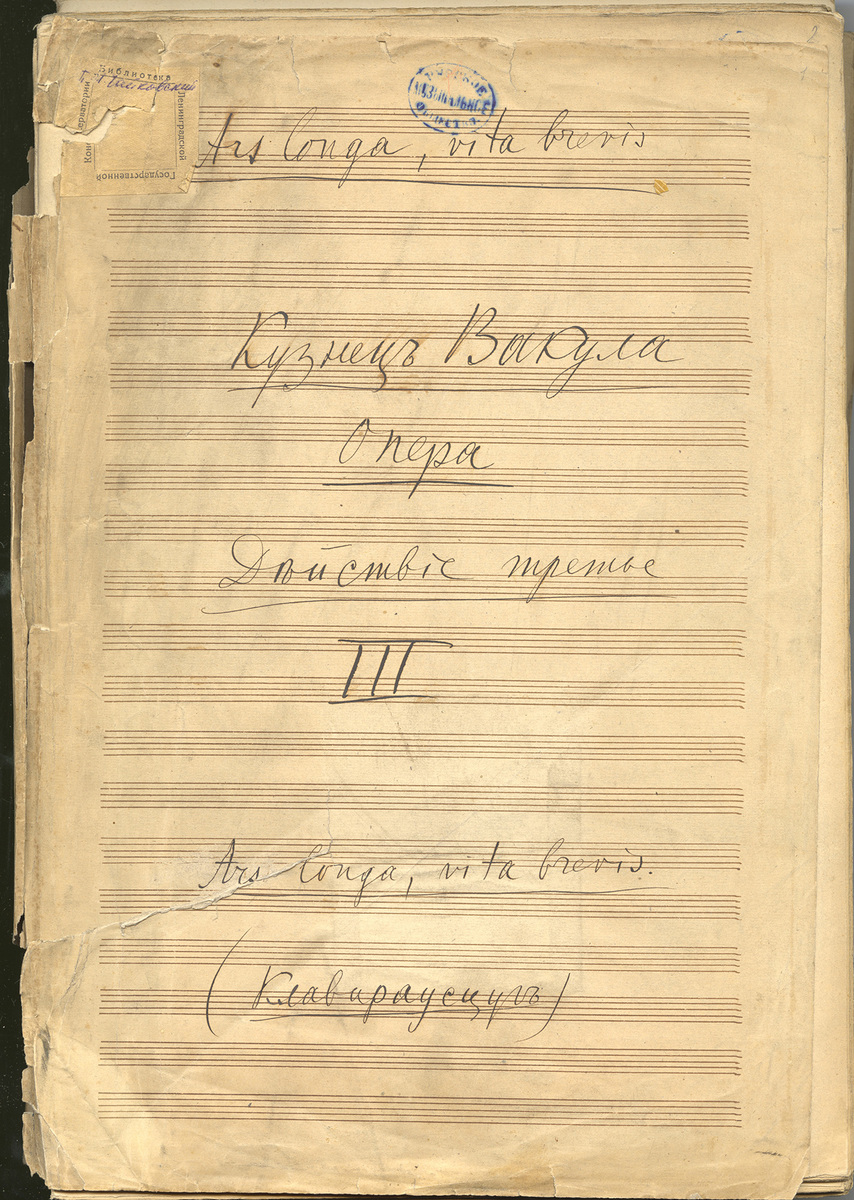 2
1
Библиотека
Ленинградской
Государственной
РУССКОЕ
МУЗЫКАЛЬНОЕ
ОБЩЕСТВО
Ars longa, vita brevis
Кузнецъ Вакула
Опера
Дѣйствіе третье
III
Ars longa, vita brevis.
(Клавираусцугъ)